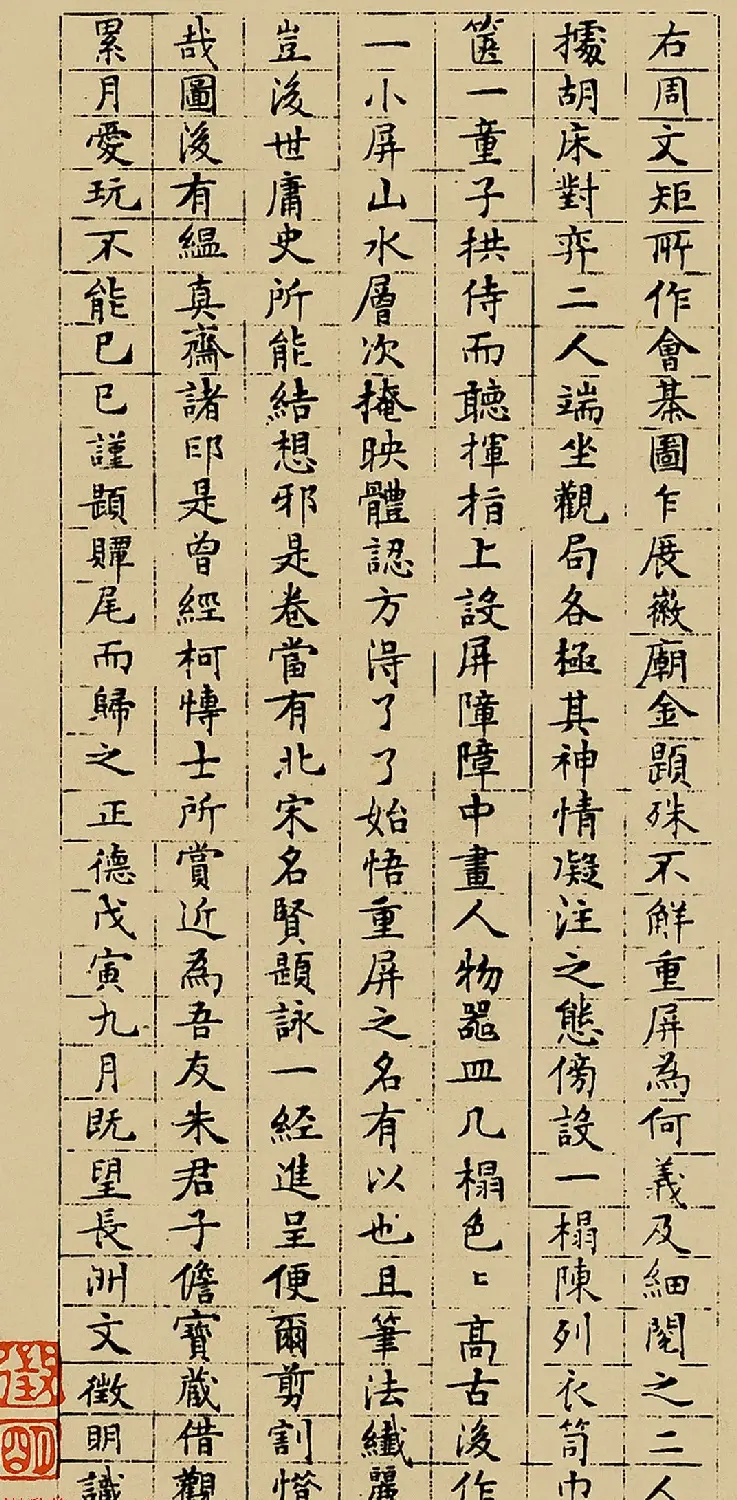 右周文矩所作會棊圖乍展徽廟金題殊不鮮重屏為何義及細閱之二人
據胡床對弈二人端坐觀局各極其神情凝注之態傍設一榻陳列衣笥巾
篋一童子拱侍而聽揮指上設屏障障中畫人物器皿几榻色〻高古後作
一小屏山水層次掩映體認方得了了始悟重屏之名有以也且筆法纖麗
豈後世庸史所能結想邪是卷當有北宋名賢題詠一經進呈便爾剪割惜
哉圖後有緼真齋諸印是曾經柯博士所賞近為吾友朱君子儋寶藏借觀
累月愛玩不能已已謹題贉尾而歸之正德戊寅九月既望長洲文徵明識
徵
明